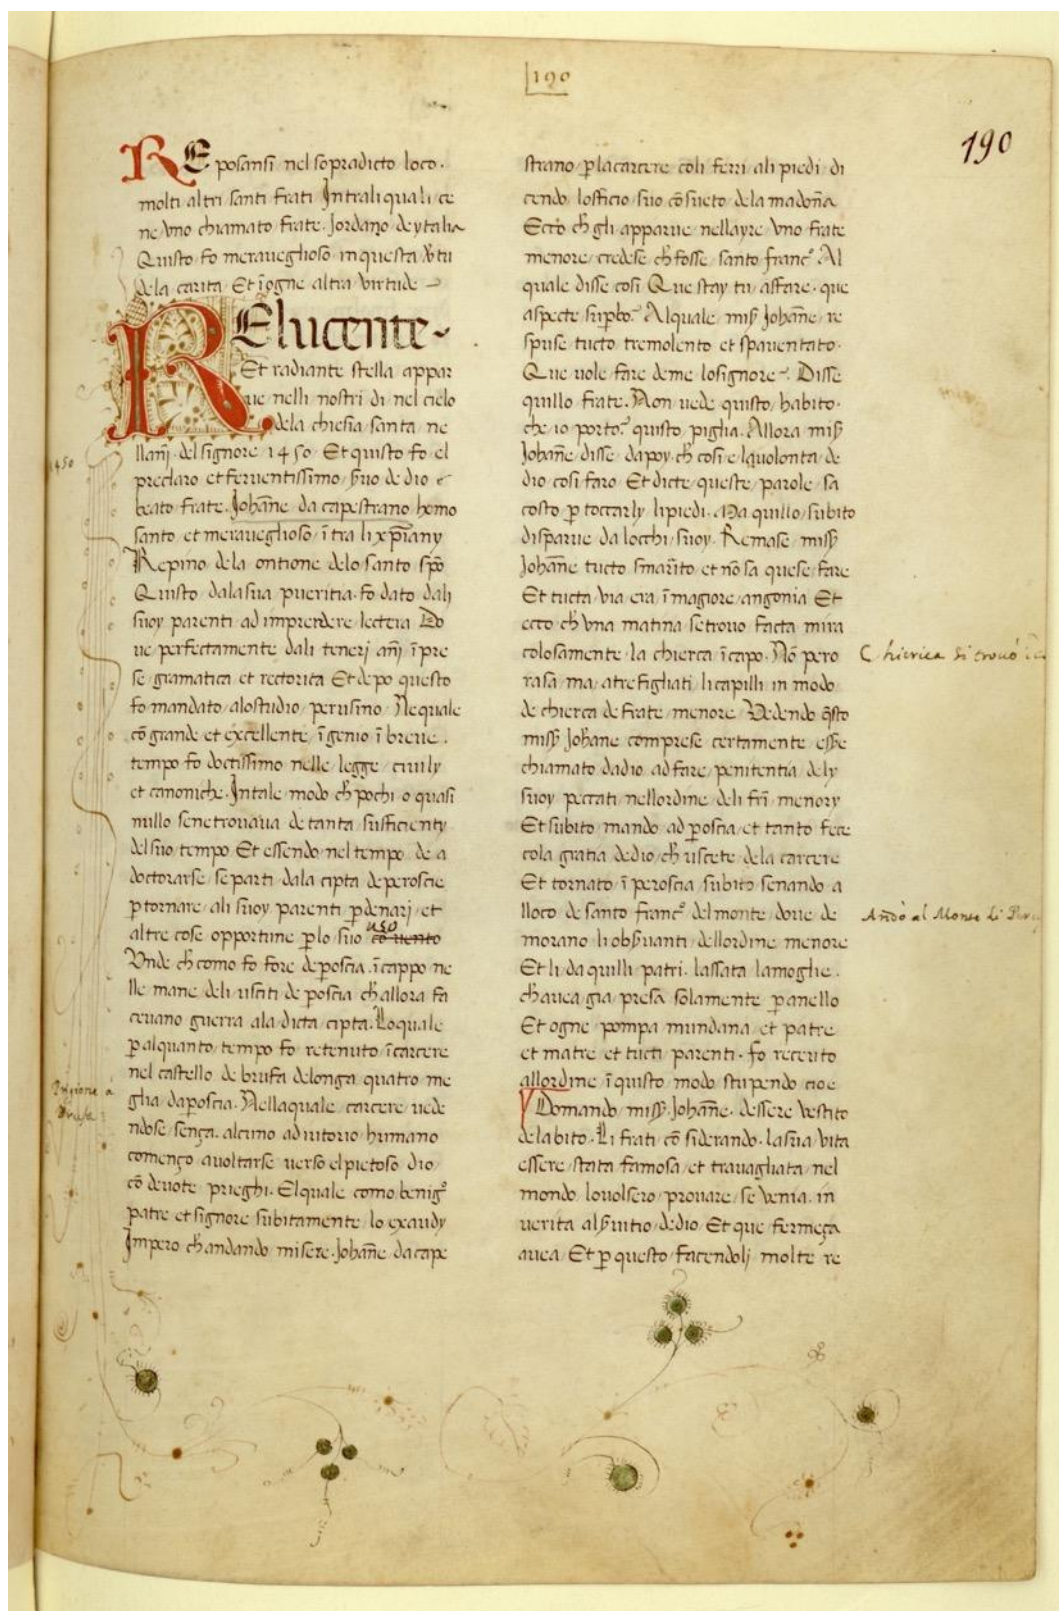 190
190
REposansi nel sopradicto loco.
molti altri santi frati Intrali quali ce
ne vno chiamato frate. Jordano de ytalia
Quisto fo meraueghioso in questa v̄tu
dela carita Et ī ogne altra virtude
RElucente
Et radiante stella appar
ue nelli nostri di nel cielo
dela chiesia santa ne
llanī del signore 1450 Et quisto fo el
1450
preclaro et feruentissimo s̄uo de dio e
beato frate. Johāne da capestrano homo
santo et meraueghioso ī tra li xp̄iany
Repino dela ontione delo santo sp̄o
Quisto dala sua pueritia. fo dato dali
suoy parenti ad imprendere lectera Do
ue perfectamente dali tenerj anī ī pre
se gramatica et rectorica Et depo questo
fo mandato alo studio perusino Nequale
cō grande et excellente ī genio ī breue.
tempo fo doctissimo nelle legge ciuily
et canoniche. In tale modo ch̄ pochi o quasi
nullo se ne trouaua de tanta sufficienty
del suo tempo Et essendo nel tempo de a
doctorarse se parti dala cipta de peroscie
p̄ tornare ali suoy parenti p̄ denarj et
altre cose opportune p̄ lo suo co uento
uso
Vnde ch̄ como fo fore de p̄oscia. ī cappo ne
lle mane deli vsciti de p̄oscia ch̄ allora fa
ceuano guerra ala dicta cipta. Loquale
p̄ alquanto tempo fo retenuto ī carcere
nel castello de brufa de longa quatro me
Prigione a
Brufa
glia da p̄oscia. Nellaquale carcere uede
ndose sença. alcuno adiutorio humano
començo a uoltarse uerso el pietoso dio
cō deuote prieghi. El quale como benig̊
patre et signore subitamente lo exaudy
Impero ch̄ andando misere. Johāne da cape
strano p̄ la carcere coli ferri ali piedi di
cendo lofficio suo cō sueto dela madoña
Ecco ch̄ gli apparue nellayre vno frate
menore credese ch̄ fosse santo franc̊ Al
quale disse cosi Que stay tu affare. que
aspecte sup̄bo? Alquale mis̄s Johāne re
spuse tucto tremolento et spauentato.
Que uole fare de me lo signore. Disse
quillo frate. Non uede quisto habito.
che io porto? quisto piglia. Allora mis̄s
Johāne disse da poy ch̄ cosi e la uolonta de
dio cosi faro Et dicte queste parole sa
costo p̄ toccarly li piedi. Ma quillo subito
disparue da locchi suoy. Remase mis̄s
Johāne tucto smarito et nō sa que se fare
Et tucta via era ī magiore angonia Et
ecco ch̄ vna matina se trouo facta mira
colosamente la chierca ī capo. Nō pero
Chierica si trouò
rasa ma atrefighati li capilli in modo
de chierca de frate menore Vedendo q̄sto
mis̄s Johane comprese certamente ess̄e
chiamato da dio ad fare penitentia dely
suoy peccati nellordine deli frī menory
Et subito mando ad p̄oscia et tanto fece
cola gratia de dio ch̄ uscete dela carcere
Et tornato ī peroscia subito senando a
lloco de santo franc̊ del monte doue de
Andò al Monte di
morano li obs̄uanti dellordine menore
Et li da quilli patri. lassata la moghe.
ch̄ auea gia presa solamente p̄ anello
Et ogne pompa mundana et patre
et matre et tucti parenti. fo receuto
allordine ī quisto modo stupendo cioe
Domando mis̄s. Johāne. dessere vestito
delabito. Li frati cō siderando. la sua vita
essere stata famosa et trauagliata nel
mondo lo uolsero prouare se venia. in
uerita al s̄uitio de dio Et que fermeça
auea Et p̄ questo facendolj molte re